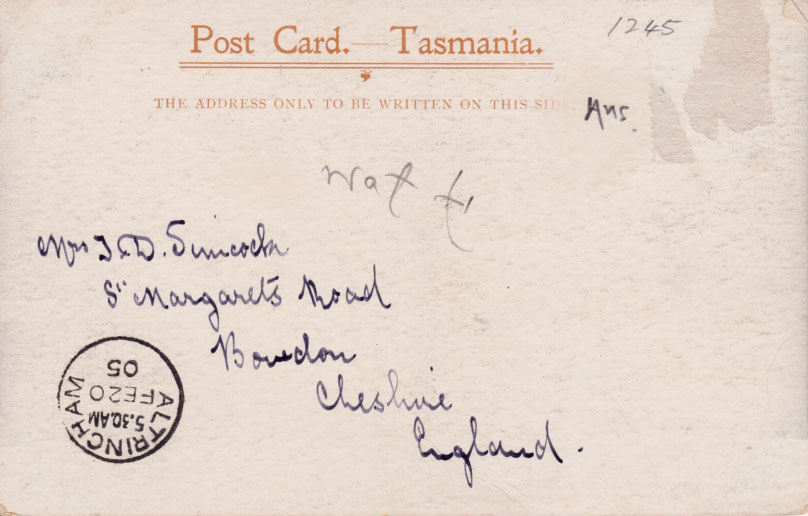 1245
Post Card.—Tasmania.
THE ADDRESS ONLY TO BE WRITTEN ON THIS SIDE
Ans.
Mrs J. D. Simcock
St Margarets Road
Bowdon
Cheshire
England.
ALTRINCHAM
5.30.AM
FE20
05